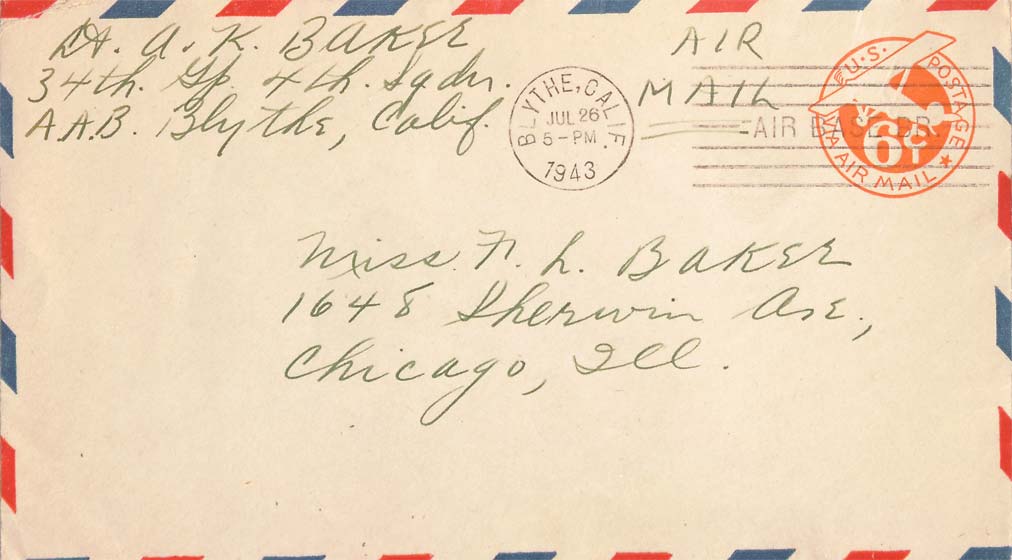 Lt. A. K. BAKER
34th. Gp. 4th. Sqdr.
A.A.B. Blythe, Calif.
AIR
MAIL
BLYTHE, CALIF.
JUL 26
5-PM
1943
AIR BASE BR.
U.S. POSTAGE
6¢
VIA AIR MAIL
Miss. F. L. BAKER
1648 Sherwin Ave.,
Chicago, Ill.